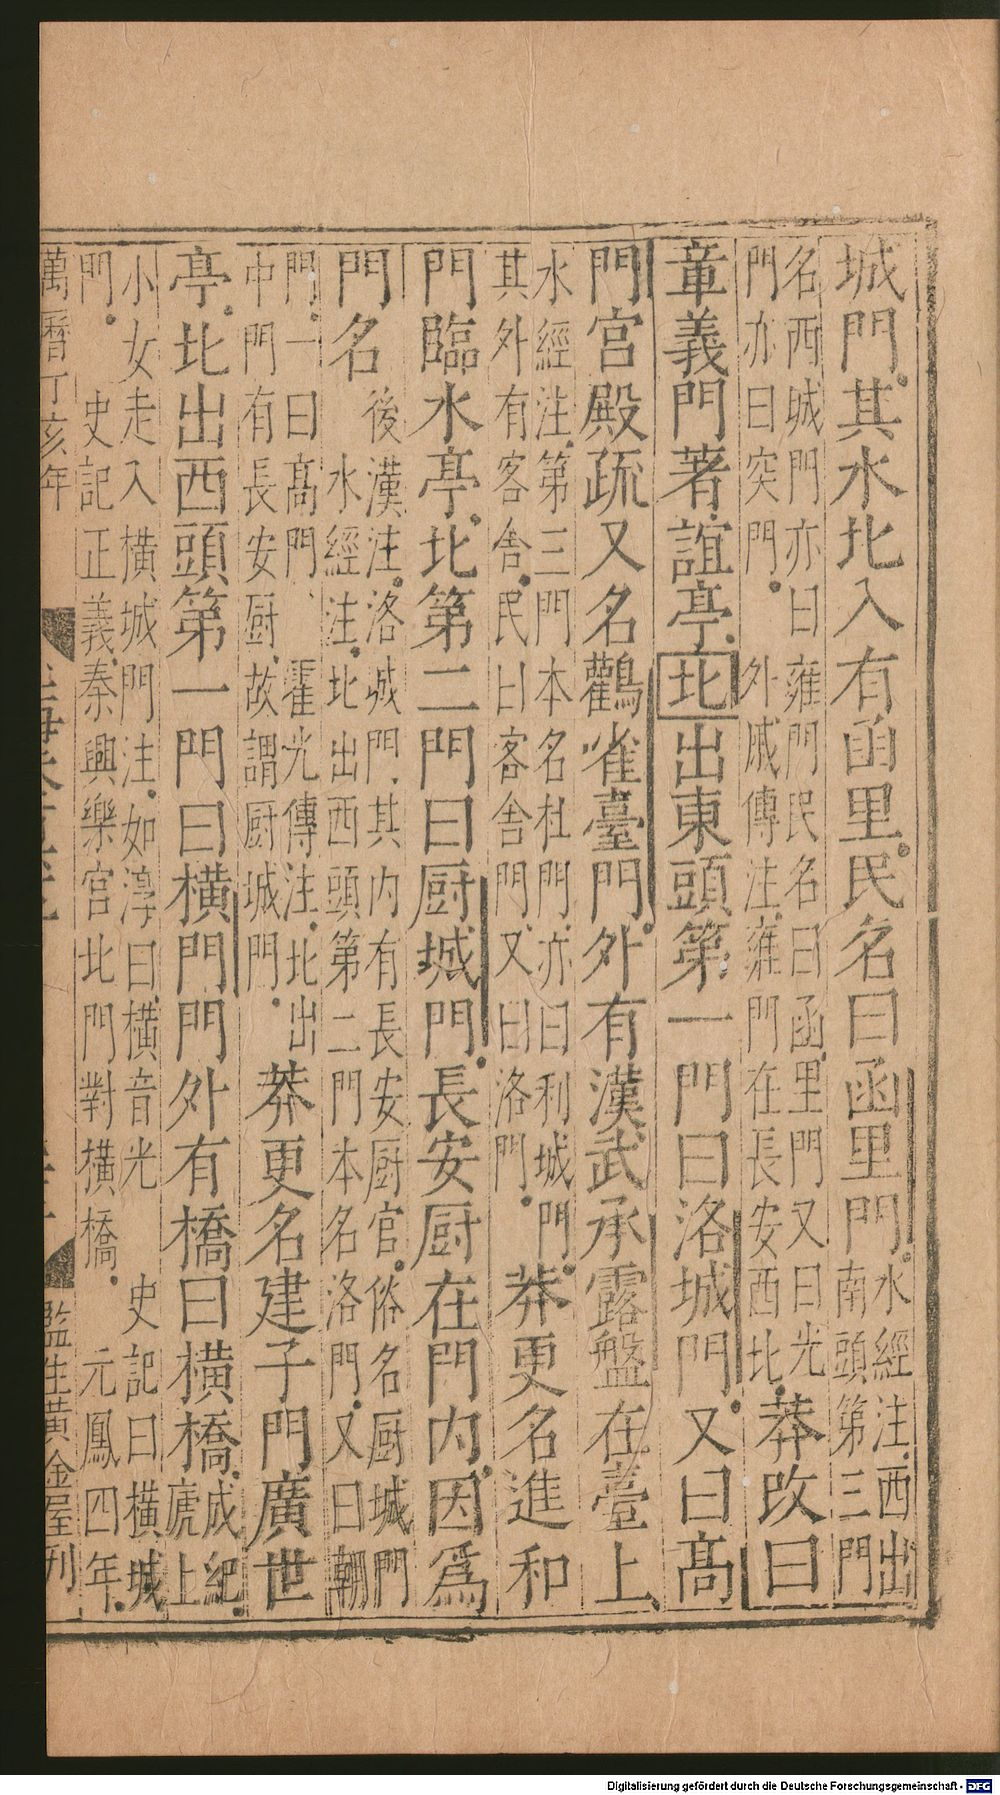 城門其水北入有函里民名曰函里門水經注西出南頭第三門
名西城門亦曰雍門民名曰函里門又曰光門亦曰突門外戚傳注雍門在長安西北莽改曰
章義門著誼亭北出東頭第一門曰洛城門又曰高
門宮殿疏又名鸛雀臺門外有漢武承露盤在臺上
水經注第三門本名杜門亦曰利城門其外有客舍民曰客舍門又曰洛門莽更名進和
門臨水亭北第二門曰厨城門長安厨在門內因為
門名後漢注洛城門其內有長安厨官俗名厨城門水經注北出西頭第二門本名洛門又曰朝
門一曰高門霍光傳注北出中門有長安厨故謂厨城門莽更名建子門廣世
亭北出西頭第一門曰橫門門外有橋曰橫橋成紀虒上
小女走入橫城門注如淳曰橫音光史記曰橫城門史記正義秦興樂宮北門對橫橋元鳳四年
萬曆丁亥年
監生黃金屋刊
Digitalisierung gefördert durch die Deutsche Forschungsgemeinschaft - DFG